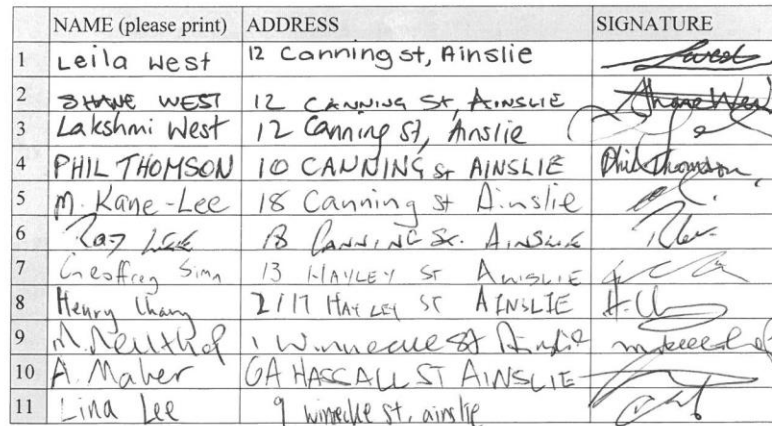 NAME (please print) ADDRESS SIGNATURE
1 Leila West 12 Canning st, Ainslie
2 SHANE WEST 12 CANNING St, AINSLIE Shane West
3 Lakshmi West 12 Canning St, Ainslie
4 PHIL THOMSON 10 CANNING St AINSLIE Phil Thomson
5 M. Kane-Lee 18 Canning st Ainslie
6 Ray LEE 18 CANNING St. AINSLIE
7 Geoffrey 13 HAYLEY St AINSLIE
8 Henry 2/17 HAYLEY ST AINSLIE
9 M. 1 Winnecke St Ainslie
10 A. Maher 6A HASSALL ST AINSLIE
11 Lina Lee 9 winnecke st, ainslie